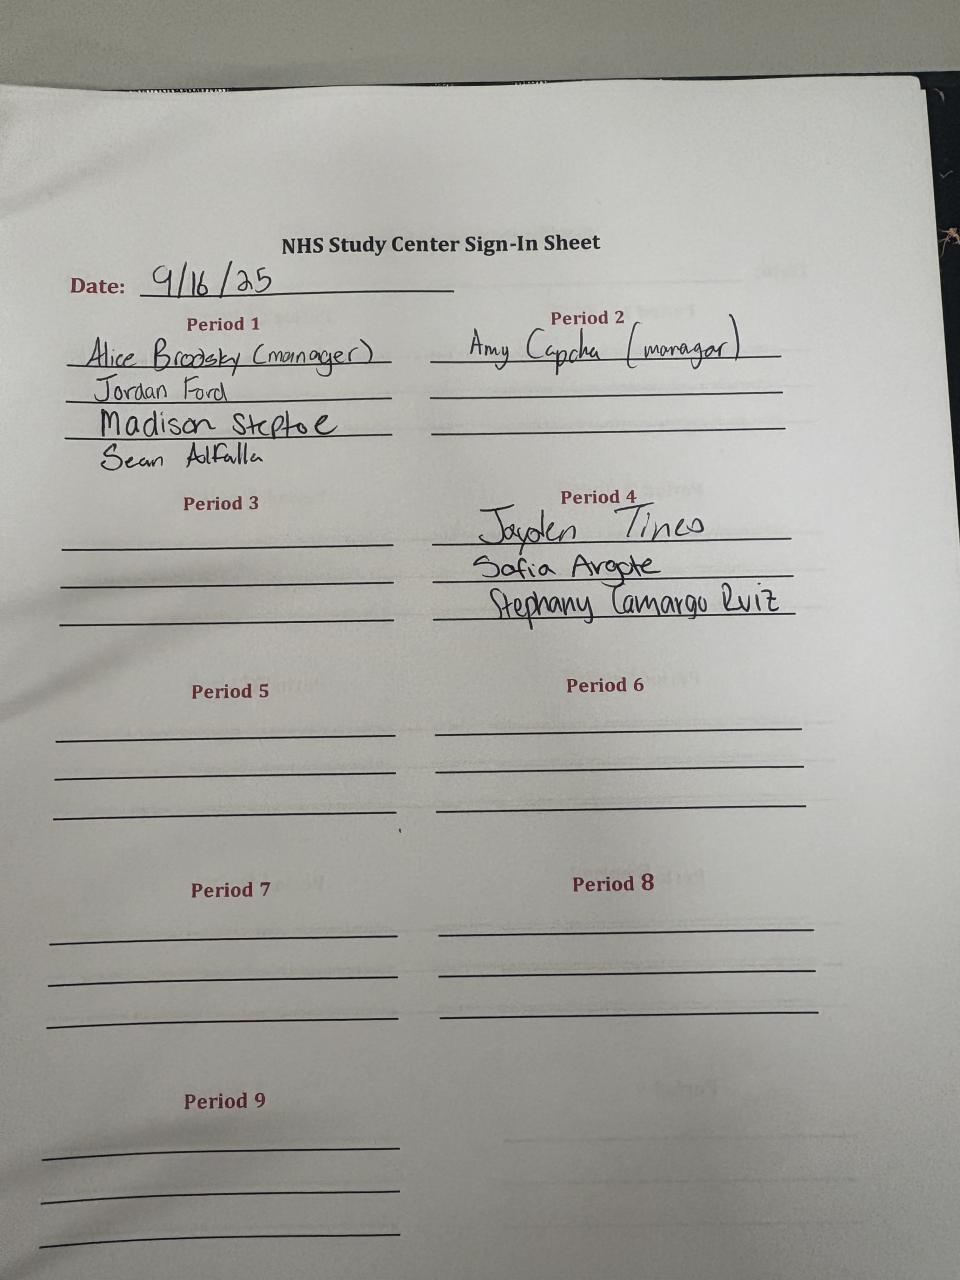 NHS Study Center Sign-In Sheet
Date: 9/16/25
Period 1
Alice Brodsky (manager)
Jordan Ford
Madison Steptoe
Sean Alfalla
Period 2
Amy Capcha (manager)
Period 3
Period 4
Jayden Tineo
Sofia Argote
Stephany Camargo Ruiz
Period 5
Period 6
Period 7
Period 8
Period 9